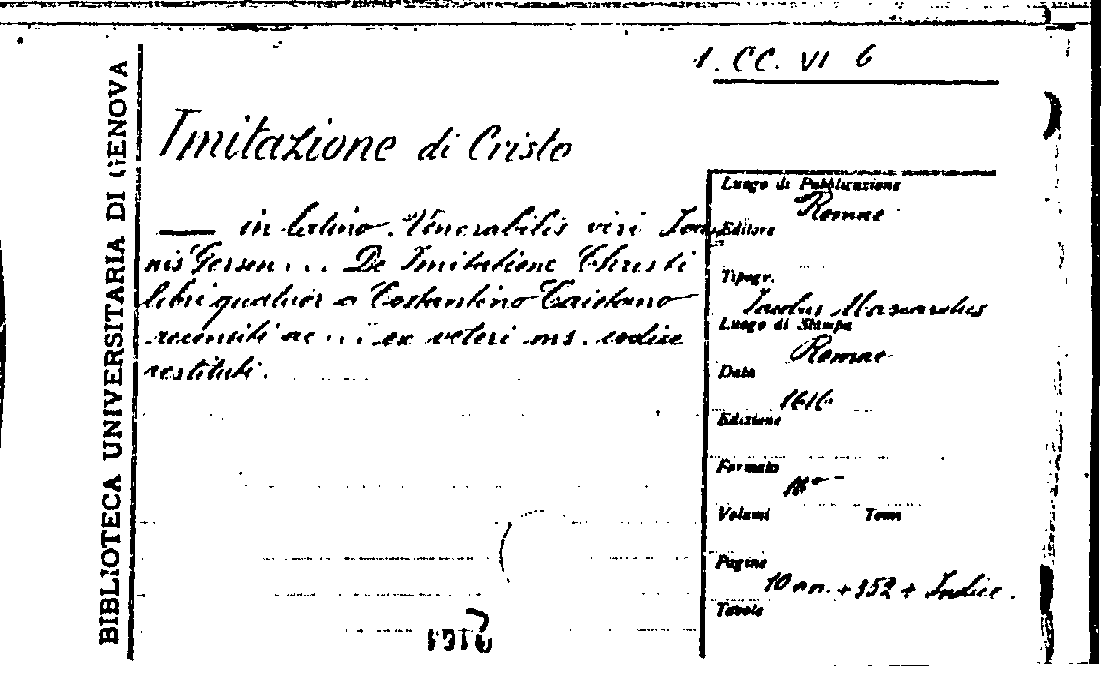 1. CC. VI 6
BIBLIOTECA UNIVERSITARIA DI GENOVA
Imitazione di Cristo
— in latino. Venerabilis viri Joan
nis Gersen... De Imitatione Christi
libri quatuor a Costantino Caietano
recensiti ac ... ex veteri ms. codice
restituti.
Luogo di Pubblicazione
Romae
Editore
Tipogr.
Iacobus Mascardus
Luogo di Stampa
Romae
Data
1616
Edizione
Formato
16°
Volumi Tomi
Pagine
10 nn. + 352 + Indice.
Tavole